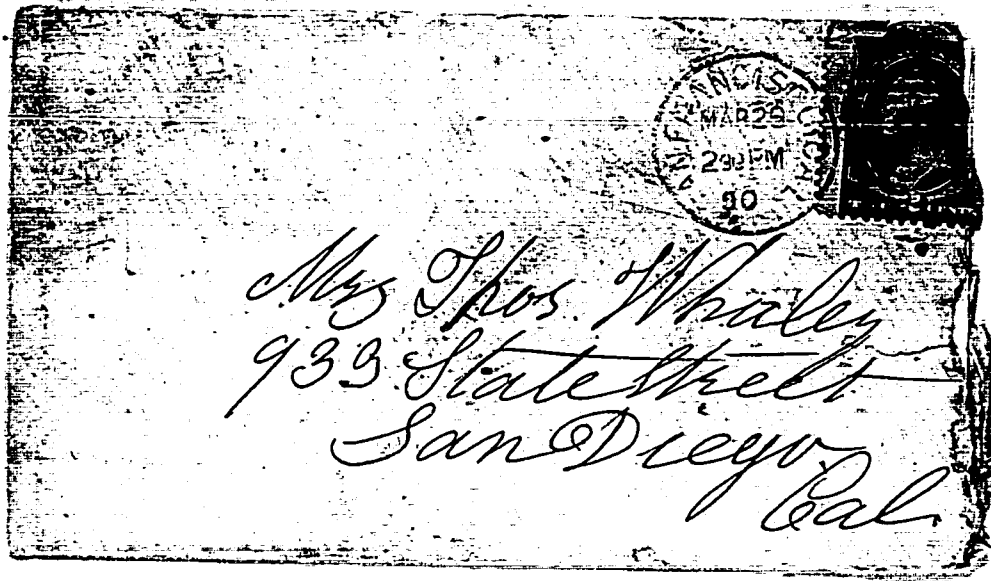 SAN FRANCISCO, CAL
MAR 29
2 30 PM
90
Mrs Thos. Whaley
933 State Street
San Diego,
Cal.